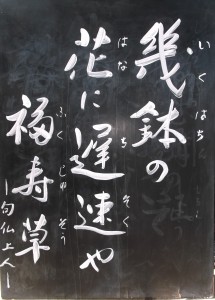 幾鉢の
いくはち
花に遅速や
はな ち そく
福寿草
ふく じゅ そう
ー句仏上人ー